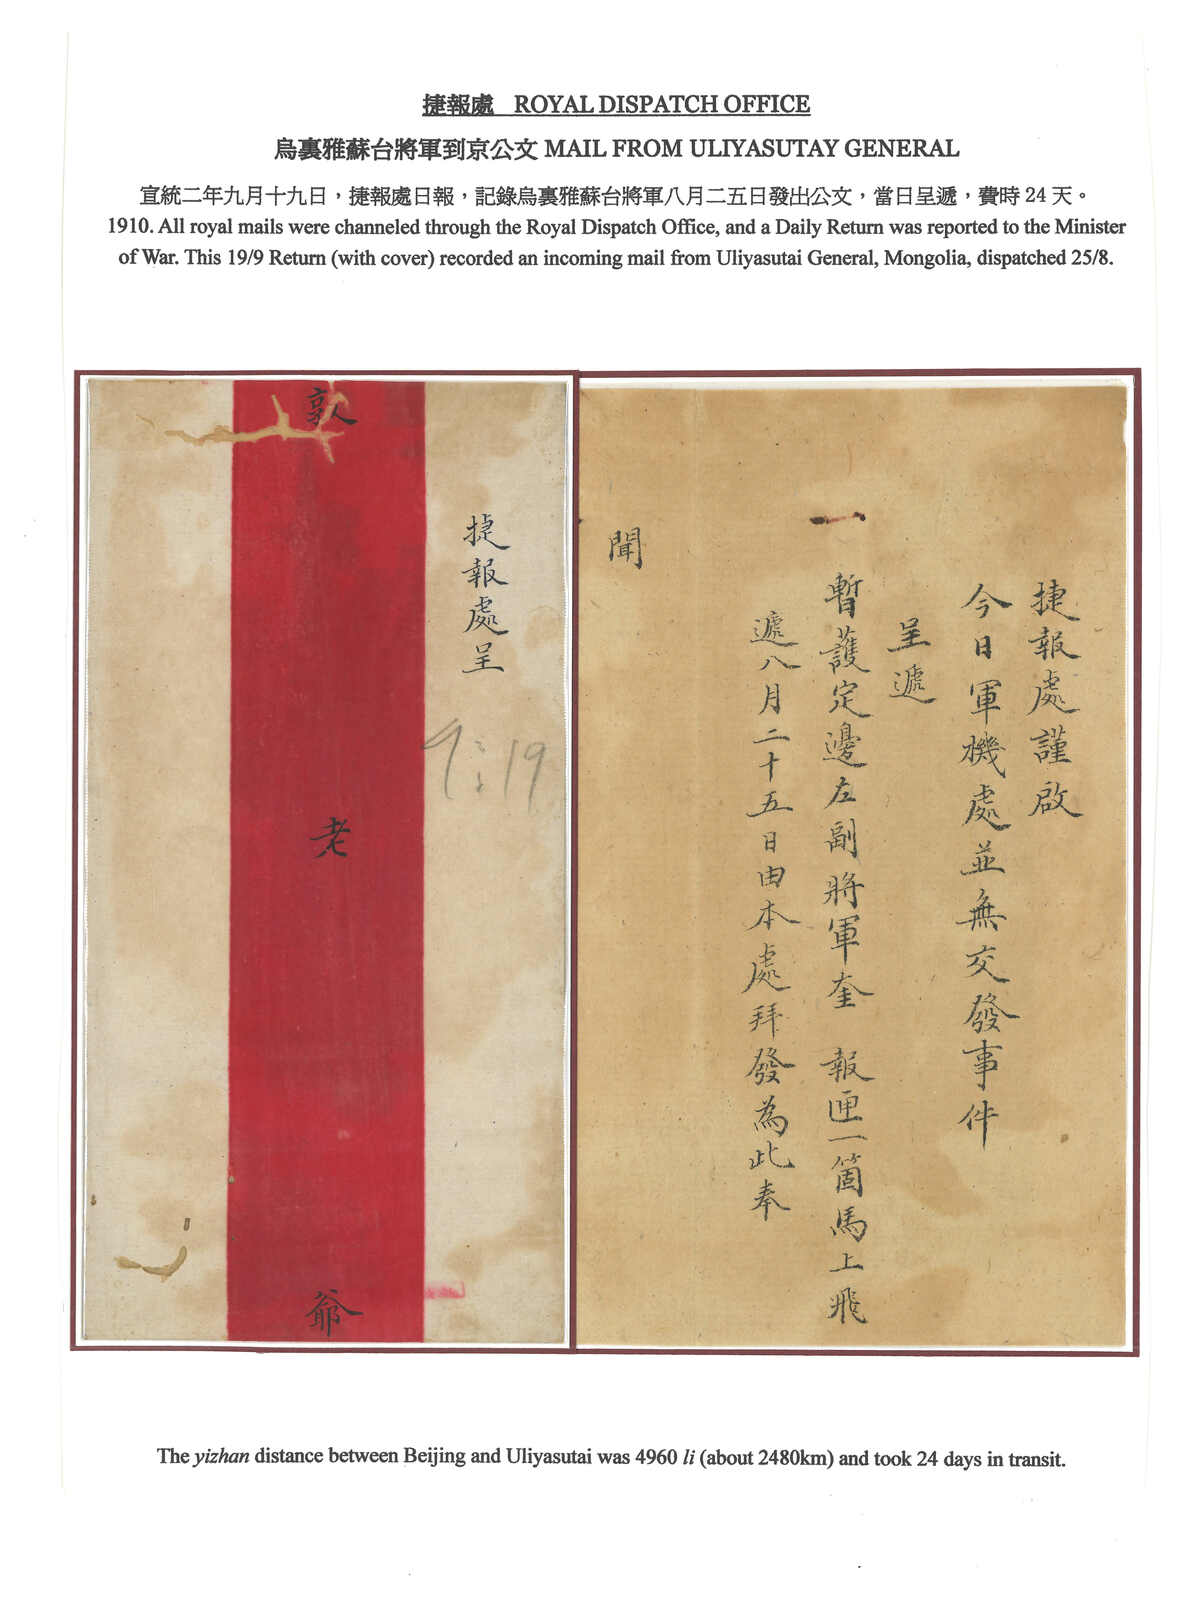 捷報處 ROYAL DISPATCH OFFICE
烏裏雅蘇台將軍到京公文 MAIL FROM ULIYASUTAY GENERAL
宣統二年九月十九日，捷報處日報，記錄烏裏雅蘇台將軍八月二五日發出公文，當日呈遞，費時 24 天。
1910. All royal mails were channeled through the Royal Dispatch Office, and a Daily Return was reported to the Minister
of War. This 19/9 Return (with cover) recorded an incoming mail from Uliyasutai General, Mongolia, dispatched 25/8.
捷報處呈
敦老爺
捷報處謹啟
今日軍機處並無交發事件
呈遞
一
暫護定邊左副將軍奎 報匣一箇馬上飛
遞八月二十五日由本處拜發為此奉
聞
The yizhan distance between Beijing and Uliyasutai was 4960 li (about 2480km) and took 24 days in transit.